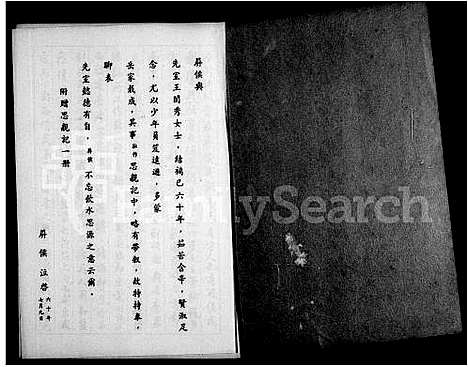 屏侯與
先室王閨秀女士，結褵已六十年，茹苦含辛，賢淑足
念，尤以少年負笈遠遊，多蒙
岳家栽成，其事拙作思親記中，略有帶敘，故特持奉，
聊表
先室懿德有自，屏侯不忘飲水思源之意云爾。
附贈思親記一冊
屏侯泣啓
六十年
七月九日
FamilySearch